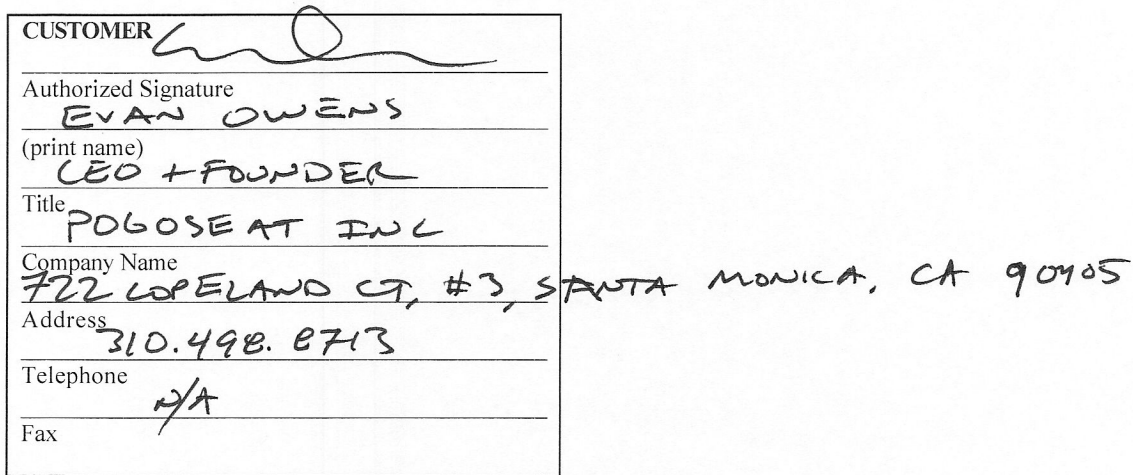 CUSTOMER
Authorized Signature
EVAN OWENS
(print name)
CEO + FOUNDER
Title
POGOSEAT INC
Company Name
722 COPELAND CT, #3, SANTA MONICA, CA 90405
Address
310.498.8713
Telephone
N/A
Fax